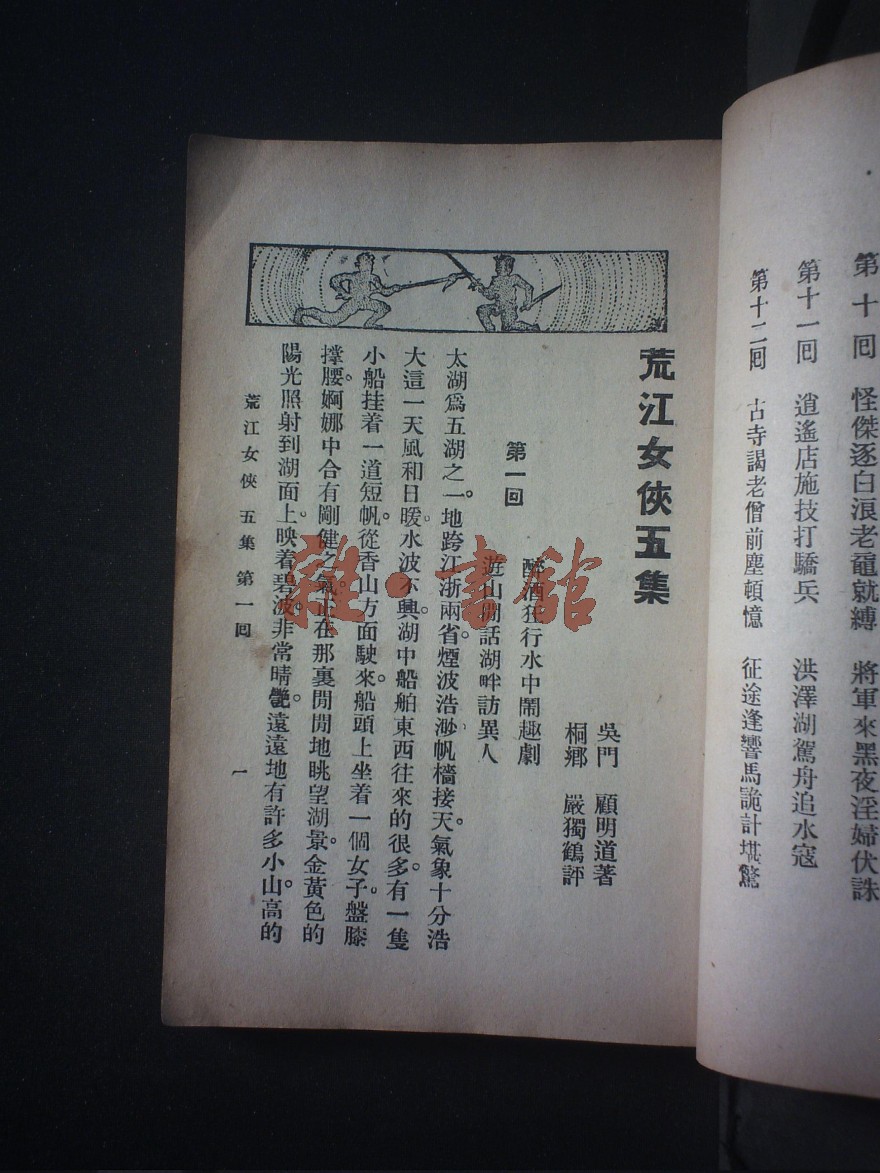 第十回 怪傑逐白浪老黿就縛 將軍來黑夜淫婦伏誅
第十一回 逍遙店施技打驕兵 洪澤湖駕舟追水寇
第十二回 古寺謁老僧前塵頓憶 征途逢響馬詭計堪驚
荒江女俠五集
吳門 顧明道著
桐鄉 嚴獨鶴評
第一回
醉酒狂行水中鬧趣劇
遊山閒話湖畔訪異人
太湖爲五湖之一。地跨江浙兩省。煙波浩渺。帆檣接天。氣象十分浩
大。這一天風和日暖。水波不興。湖中船舶東西往來的很多。有一隻
小船挂着一道短帆。從香山方面駛來。船頭上坐着一個女子。盤膝
撑腰。婀娜中合有剛健之氣。正在那裏閒閒地眺望湖景。金黃色的
陽光照射到湖面上。映着碧波。非常晴艷。遠遠地有許多小山。高的
荒江女俠 五集 第一回
一
雜·書館